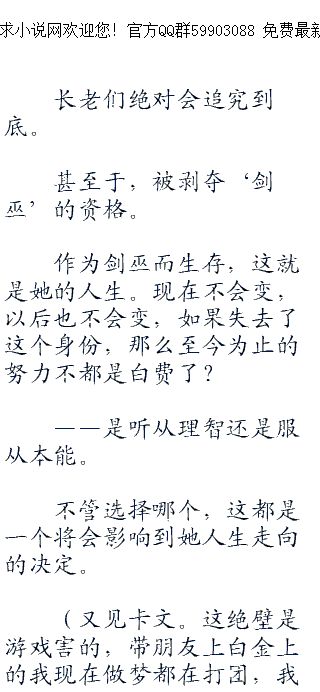 求小说网欢迎您! 官方QQ群59903088 免费最新
长老们绝对会追究到
底。
甚至于，被剥夺‘剑
巫’的资格。
作为剑巫而生存，这就
是她的人生。现在不会变，
以后也不会变，如果失去了
这个身份，那么至今为止的
努力不都是白费了？
——是听从理智还是服
从本能。
不管选择哪个，这都是
一个将会影响到她人生走向
的决定。
（又见卡文。这绝壁是
游戏害的，带朋友上白金上
的我现在做梦都在打团，我